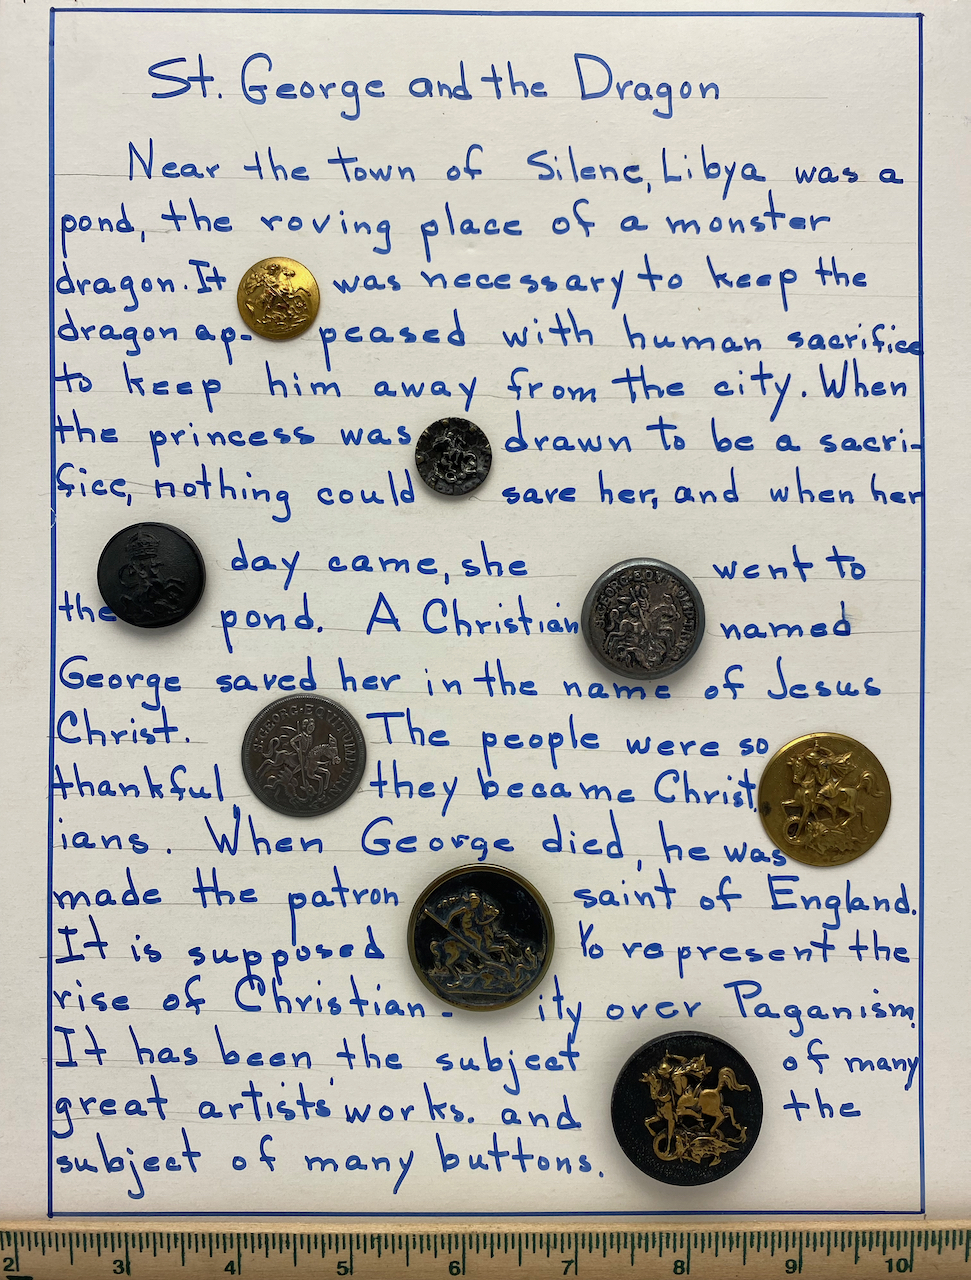 St. George and the Dragon
Near the town of Silene, Libya was a
pond, the roving place of a monster
dragon. It was necessary to keep the
dragon ap- peased with human sacrifice
to keep him away from the city. When
the princess was drawn to be a sacri-
fice, nothing could save her, and when her
day came, she went to
the pond. A Christian named
George saved her in the name of Jesus
Christ. The people were so
thankful, they became Christ
ians. When George died, he was
made the patron saint of England.
It is supposed to represent the
rise of Christian- ity over Paganism.
It has been the subject of many
great artists' works. and the
subject of many buttons.
S. GEORG. EQVITVM PATRON
S. GEORG. EQVITVM PATRON
2 3 4 5 6 7 8 9 10